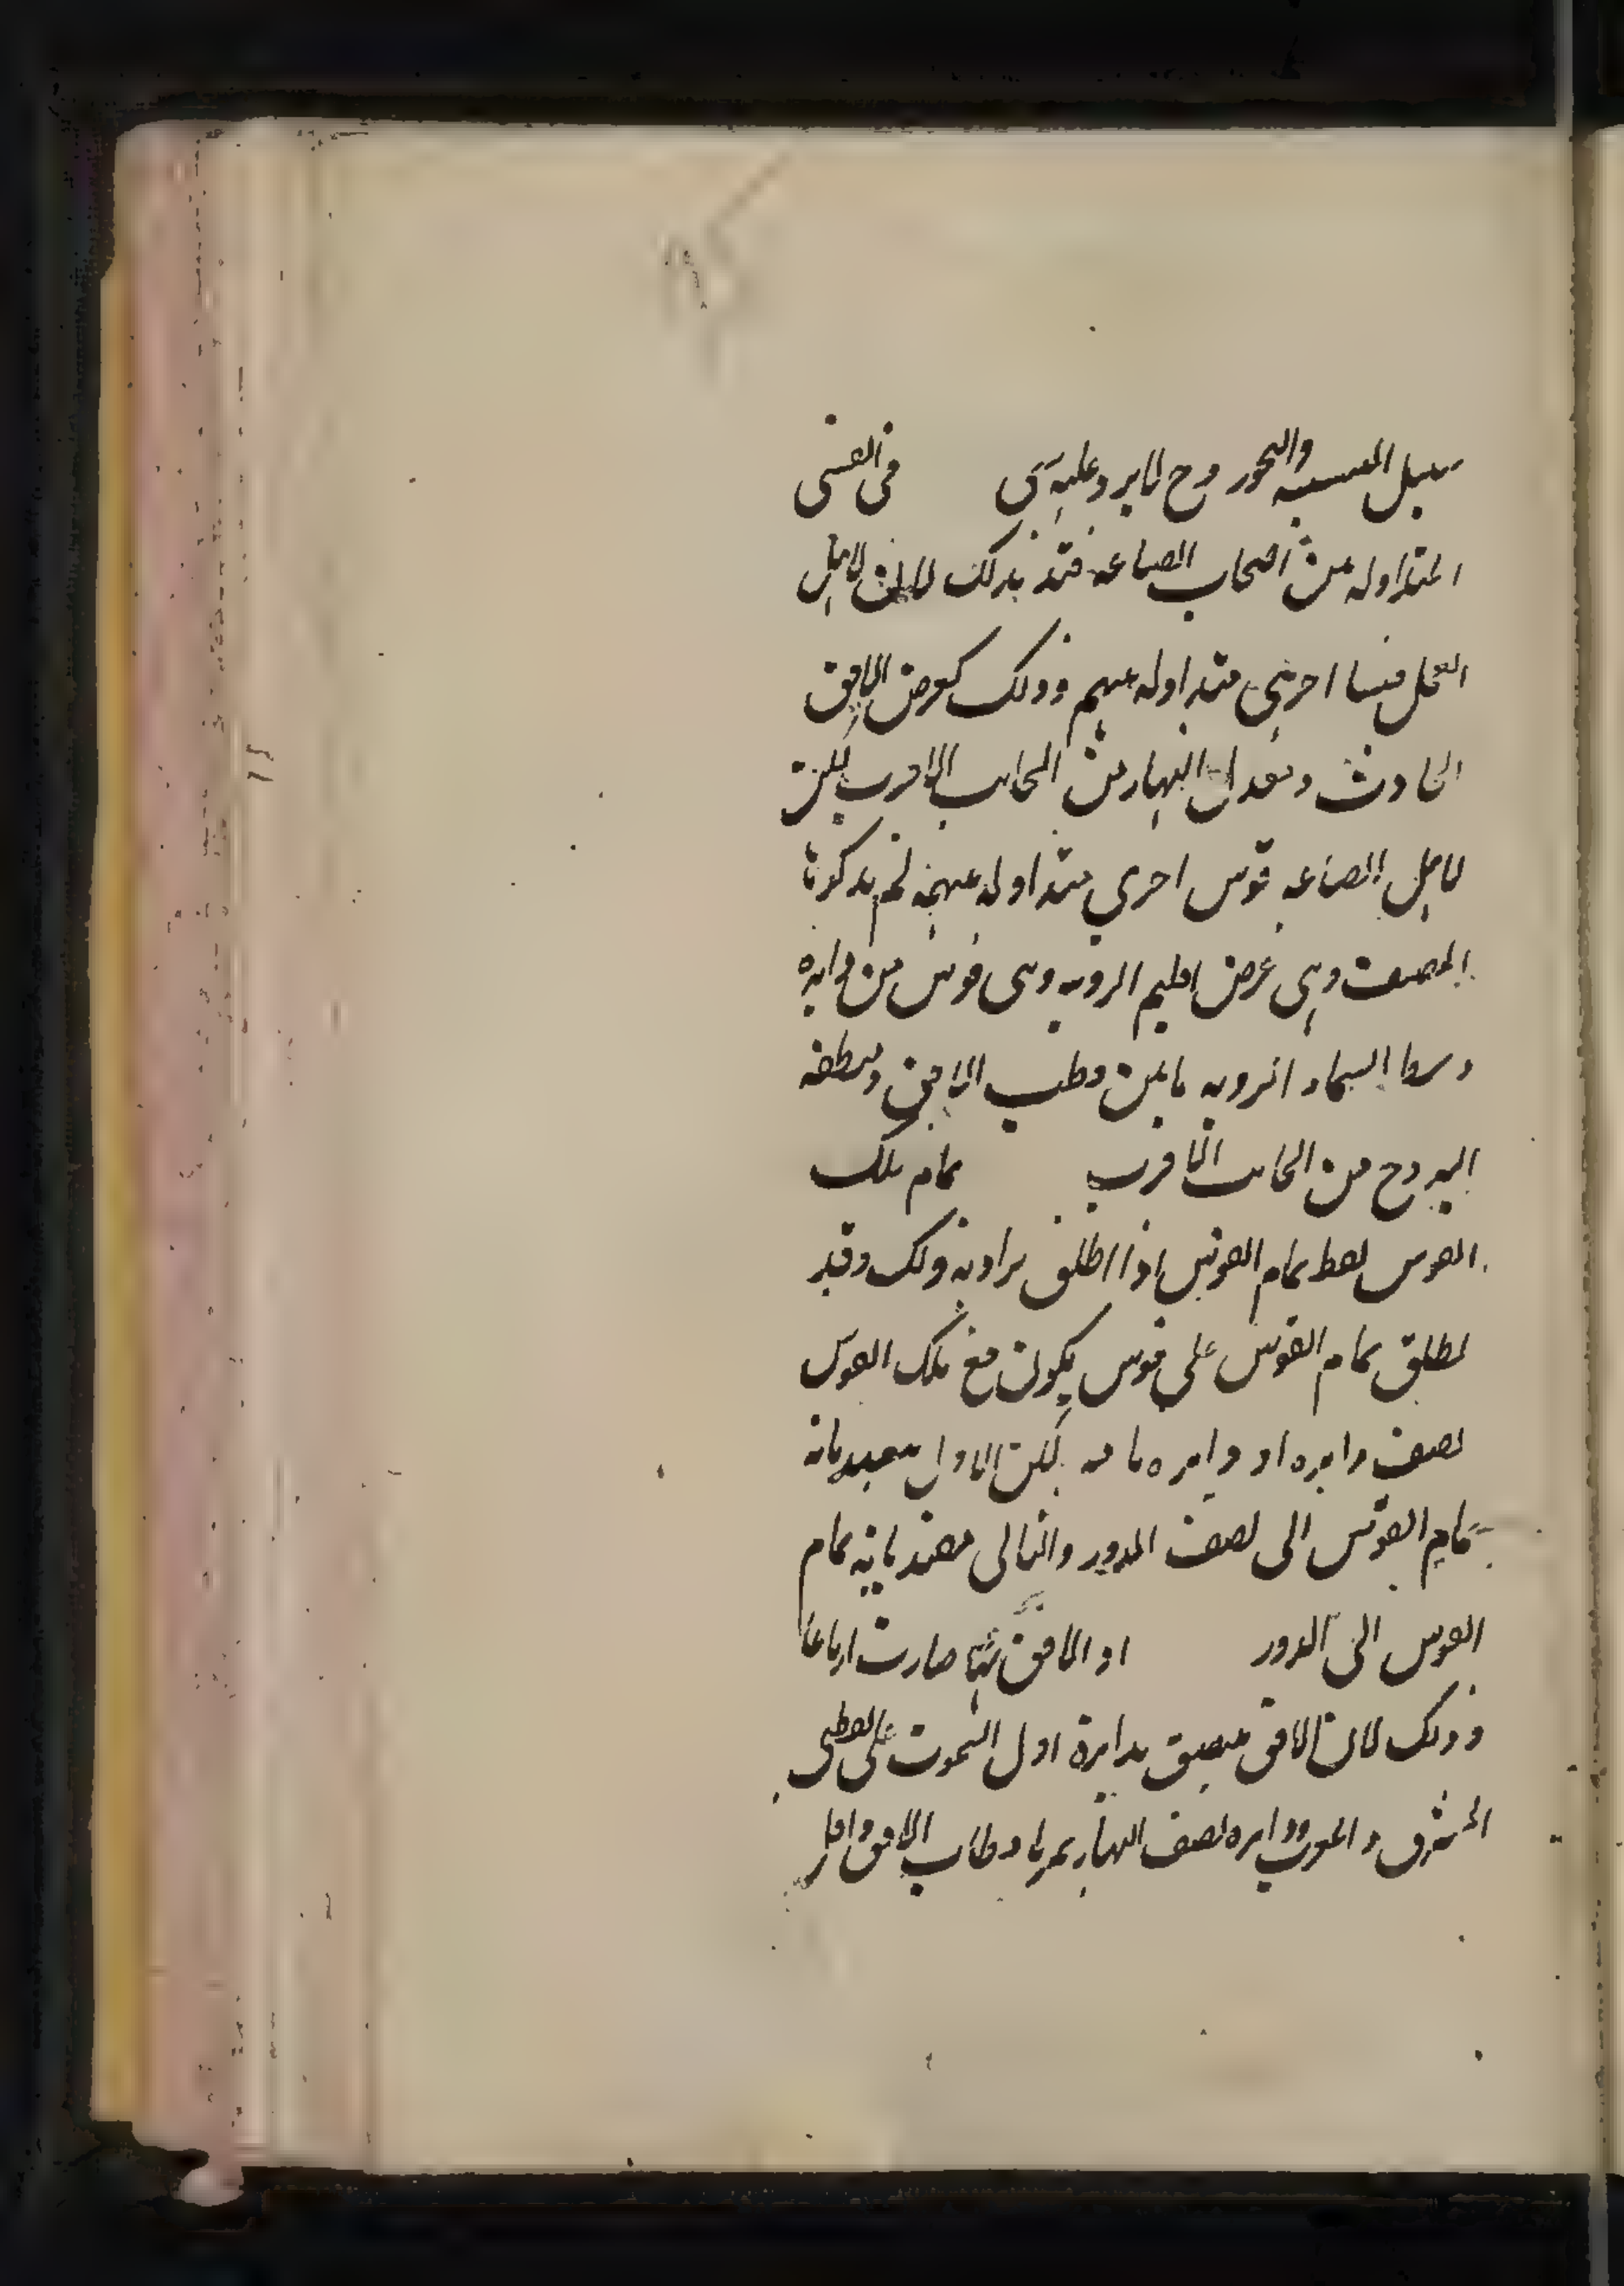 سبيل التشبيه والتجوز وح لا يرد عليه شى في القسى
المتداوله بين اصحاب الصناعه قيد بذلك لان لاهل
العمل قسيا اخرى متداوله بينهم وذلك كعرض الافق
الحادث ومعدل النهار من الجانب الاقرب لكن
لاهل الصناعه قوس اخرى متداوله بينهم لم يذكرها
المصنف وهى عرض اقليم الرويه وهى قوس من دايره
وسط السماء الرويه ما بين قطب الافق ومنطقه
البروج من الجانب الاقرب تمام تلك
القوس لفظ تمام القوس اذا اطلق يراد به ذلك وقد
يطلق تمام القوس على قوس يكون مع تلك القوس
نصف دايره او دايره تامه لكن الاول مقيد بانه
تمام القوس الى نصف الدور والثانى مقيد بانه تمام
القوس الى الدور او الافق بها صارت ارباعا
وذلك لان الافق يتقاطع بدايرة اول السموت على نقطتى
المشرق والمغرب ودايره نصف النهار يمر باقطاب الافق واول